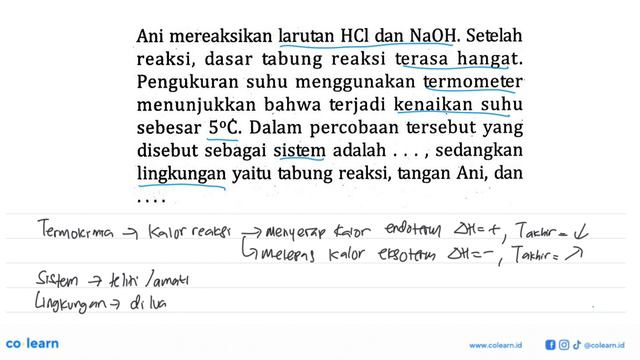 Ani mereaksikan larutan HCl dan NaOH. Setelah
reaksi, dasar tabung reaksi terasa hangat.
Pengukuran suhu menggunakan termometer
menunjukkan bahwa terjadi kenaikan suhu
sebesar 5°C. Dalam percobaan tersebut yang
disebut sebagai sistem adalah . . . , sedangkan
lingkungan yaitu tabung reaksi, tangan Ani, dan
. . . .
Termokimia → Kalor reaksi → menyerap kalor endoterm ΔH = +, Takhir = ↓
↳ melepas kalor eksoterm ΔH = -, Takhir = ↗
Sistem → teliti /amati
Lingkungan → di lua
co learn www.colearn.id @colearn.id